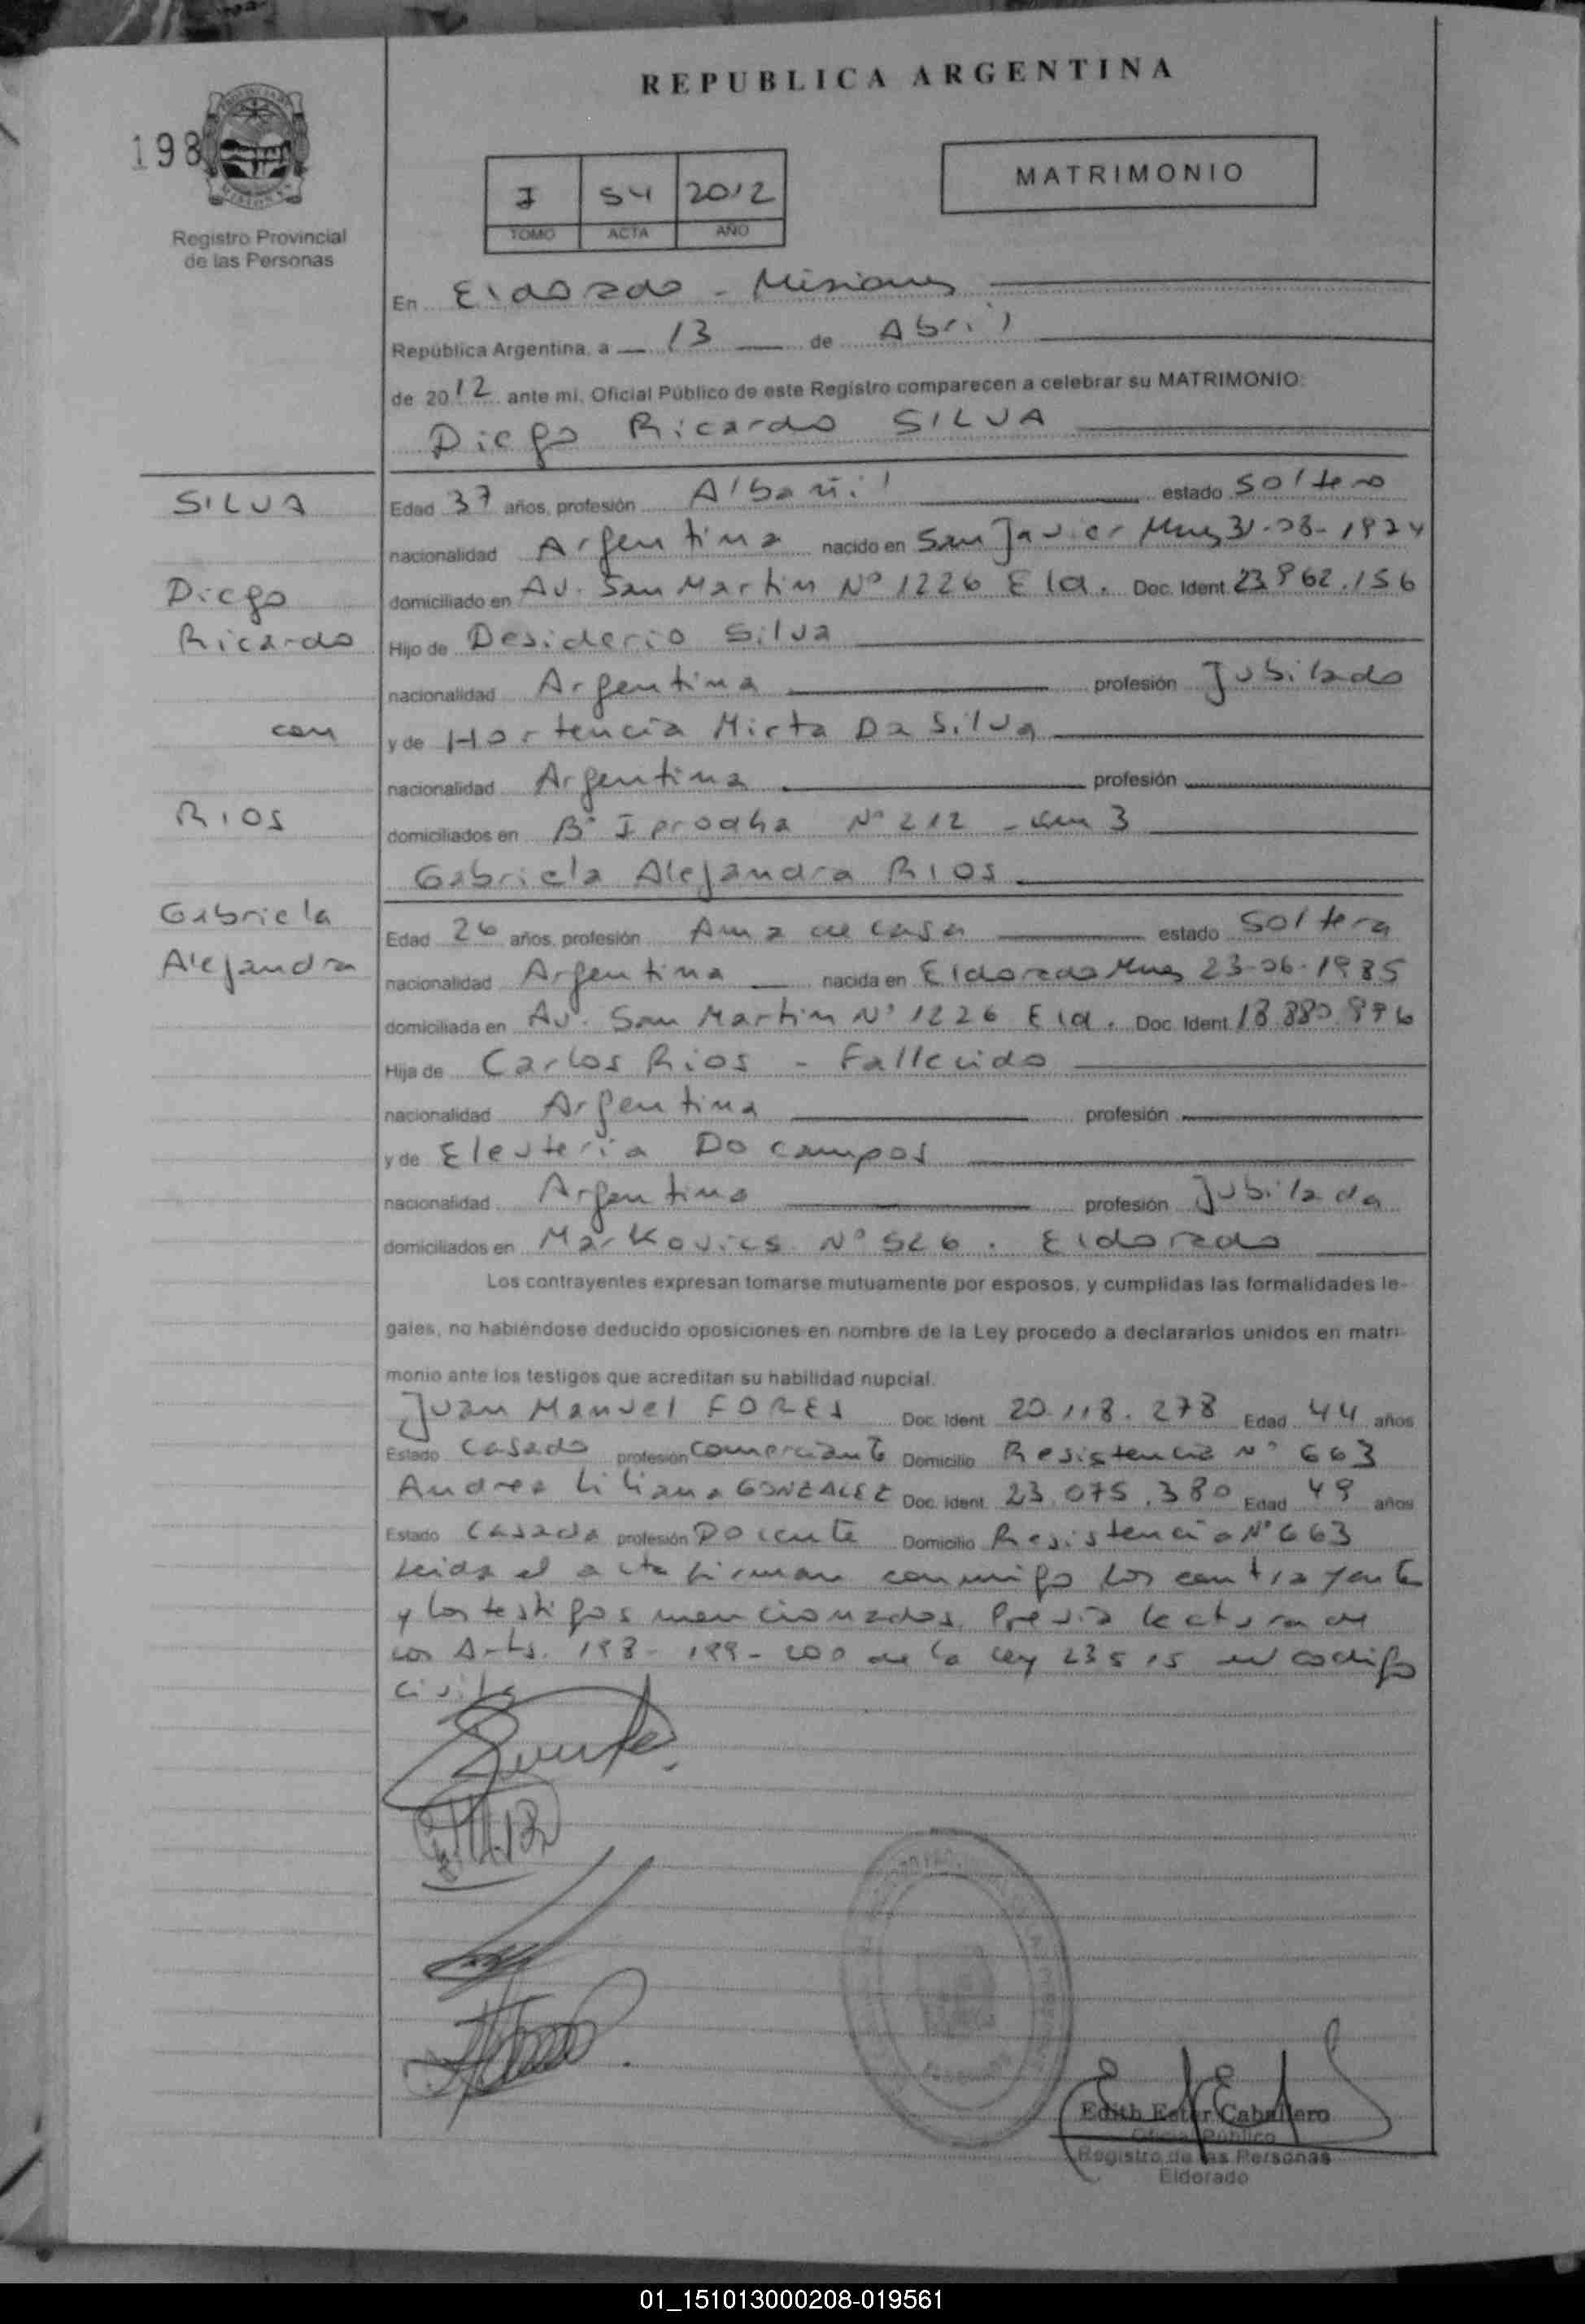 REPUBLICA ARGENTINA
198
Registro Provincial
de las Personas
MATRIMONIO
I 54 2012
TOMO ACTA AÑO
En Eldorado - Misiones
República Argentina, a 13 de Abril
de 2012 ante mi, Oficial Público de este Registro comparecen a celebrar su MATRIMONIO:
Diego Ricardo SILVA
SILVA
Edad 37 años, profesión Albañil estado Soltero
nacionalidad Argentina nacido en San Javier Mnes 31-08-1974
Diego
domiciliado en Av. San Martin Nº 1226 Eld. Doc. Ident. 23.962.156
Ricardo
Hijo de Desiderio Silva
nacionalidad Argentina profesión Jubilado
con
y de Hortencia Mirta Da Silva
nacionalidad Argentina profesión
RIOS
domiciliados en Bº Iprodha Nº 212 - km 3
Gabriela Alejandra RIOS
Gabriela
Edad 26 años, profesión Ama de casa estado Soltera
Alejandra
nacionalidad Argentina nacida en Eldorado Mnes 23-06-1985
domiciliada en Av. San Martin Nº 1226 Eld. Doc. Ident. 18.880.996
Hija de Carlos Rios - Fallecido
nacionalidad Argentina profesión
y de Eleuteria Do campos
nacionalidad Argentina profesión Jubilada
domiciliados en Markovics Nº 526. Eldorado
Los contrayentes expresan tomarse mutuamente por esposos, y cumplidas las formalidades le-
gales, no habiéndose deducido oposiciones en nombre de la Ley procedo a declararlos unidos en matri-
monio ante los testigos que acreditan su habilidad nupcial.
Juan Manuel FORES Doc. Ident. 20.118.278 Edad 44 años
Estado Casado profesión Comerciante Domicilio Resistencia Nº 663
Andrea Liliana GONZALEZ Doc. Ident. 23.075.380 Edad 49 años
Estado Casada profesión Docente Domicilio Resistencia Nº 663
Leida el acta firman conmigo los contrayente
y los testigos mencionados. Previa lectura de
los Arts. 198-199-200 de la ley 23515 del codigo
civil
Edith Ester Caballero
Oficial Público
Registro de las Personas
Eldorado
01_151013000208-019561